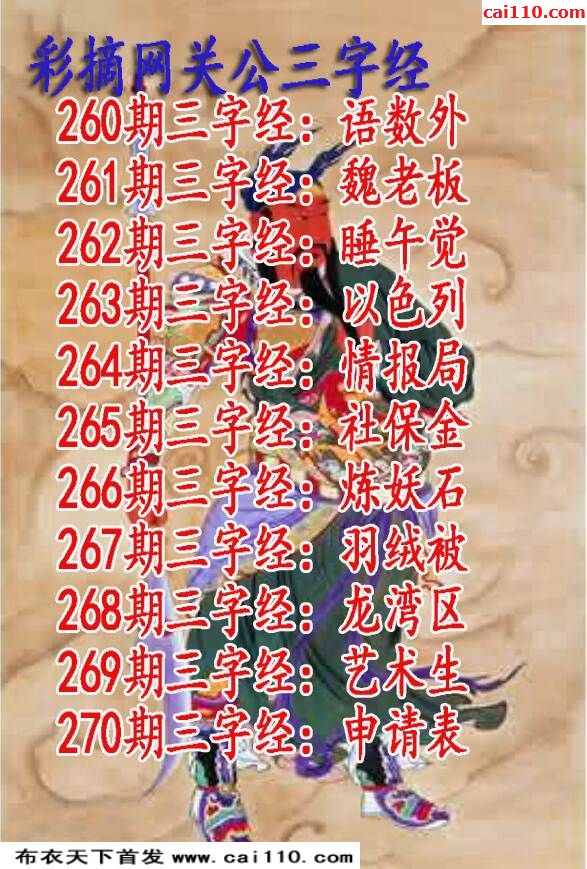 cai110.com
彩摘网关公三字经
260期三字经：语数外
261期三字经：魏老板
262期三字经：睡午觉
263期三字经：以色列
264期三字经：情报局
265期三字经：社保金
266期三字经：炼妖石
267期三字经：羽绒被
268期三字经：龙湾区
269期三字经：艺术生
270期三字经：申请表
布衣天下首发 www.cai110.com